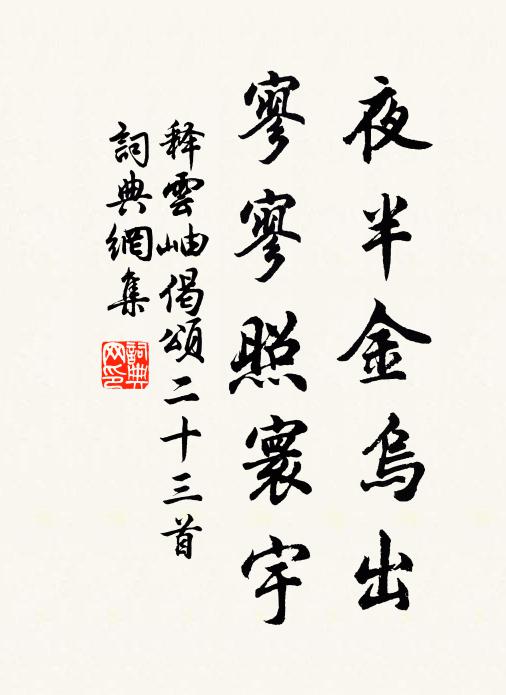 夜半金烏出
寥寥照寰宇
释雲岫偈頌二十三首
詞典網集
詞典网印